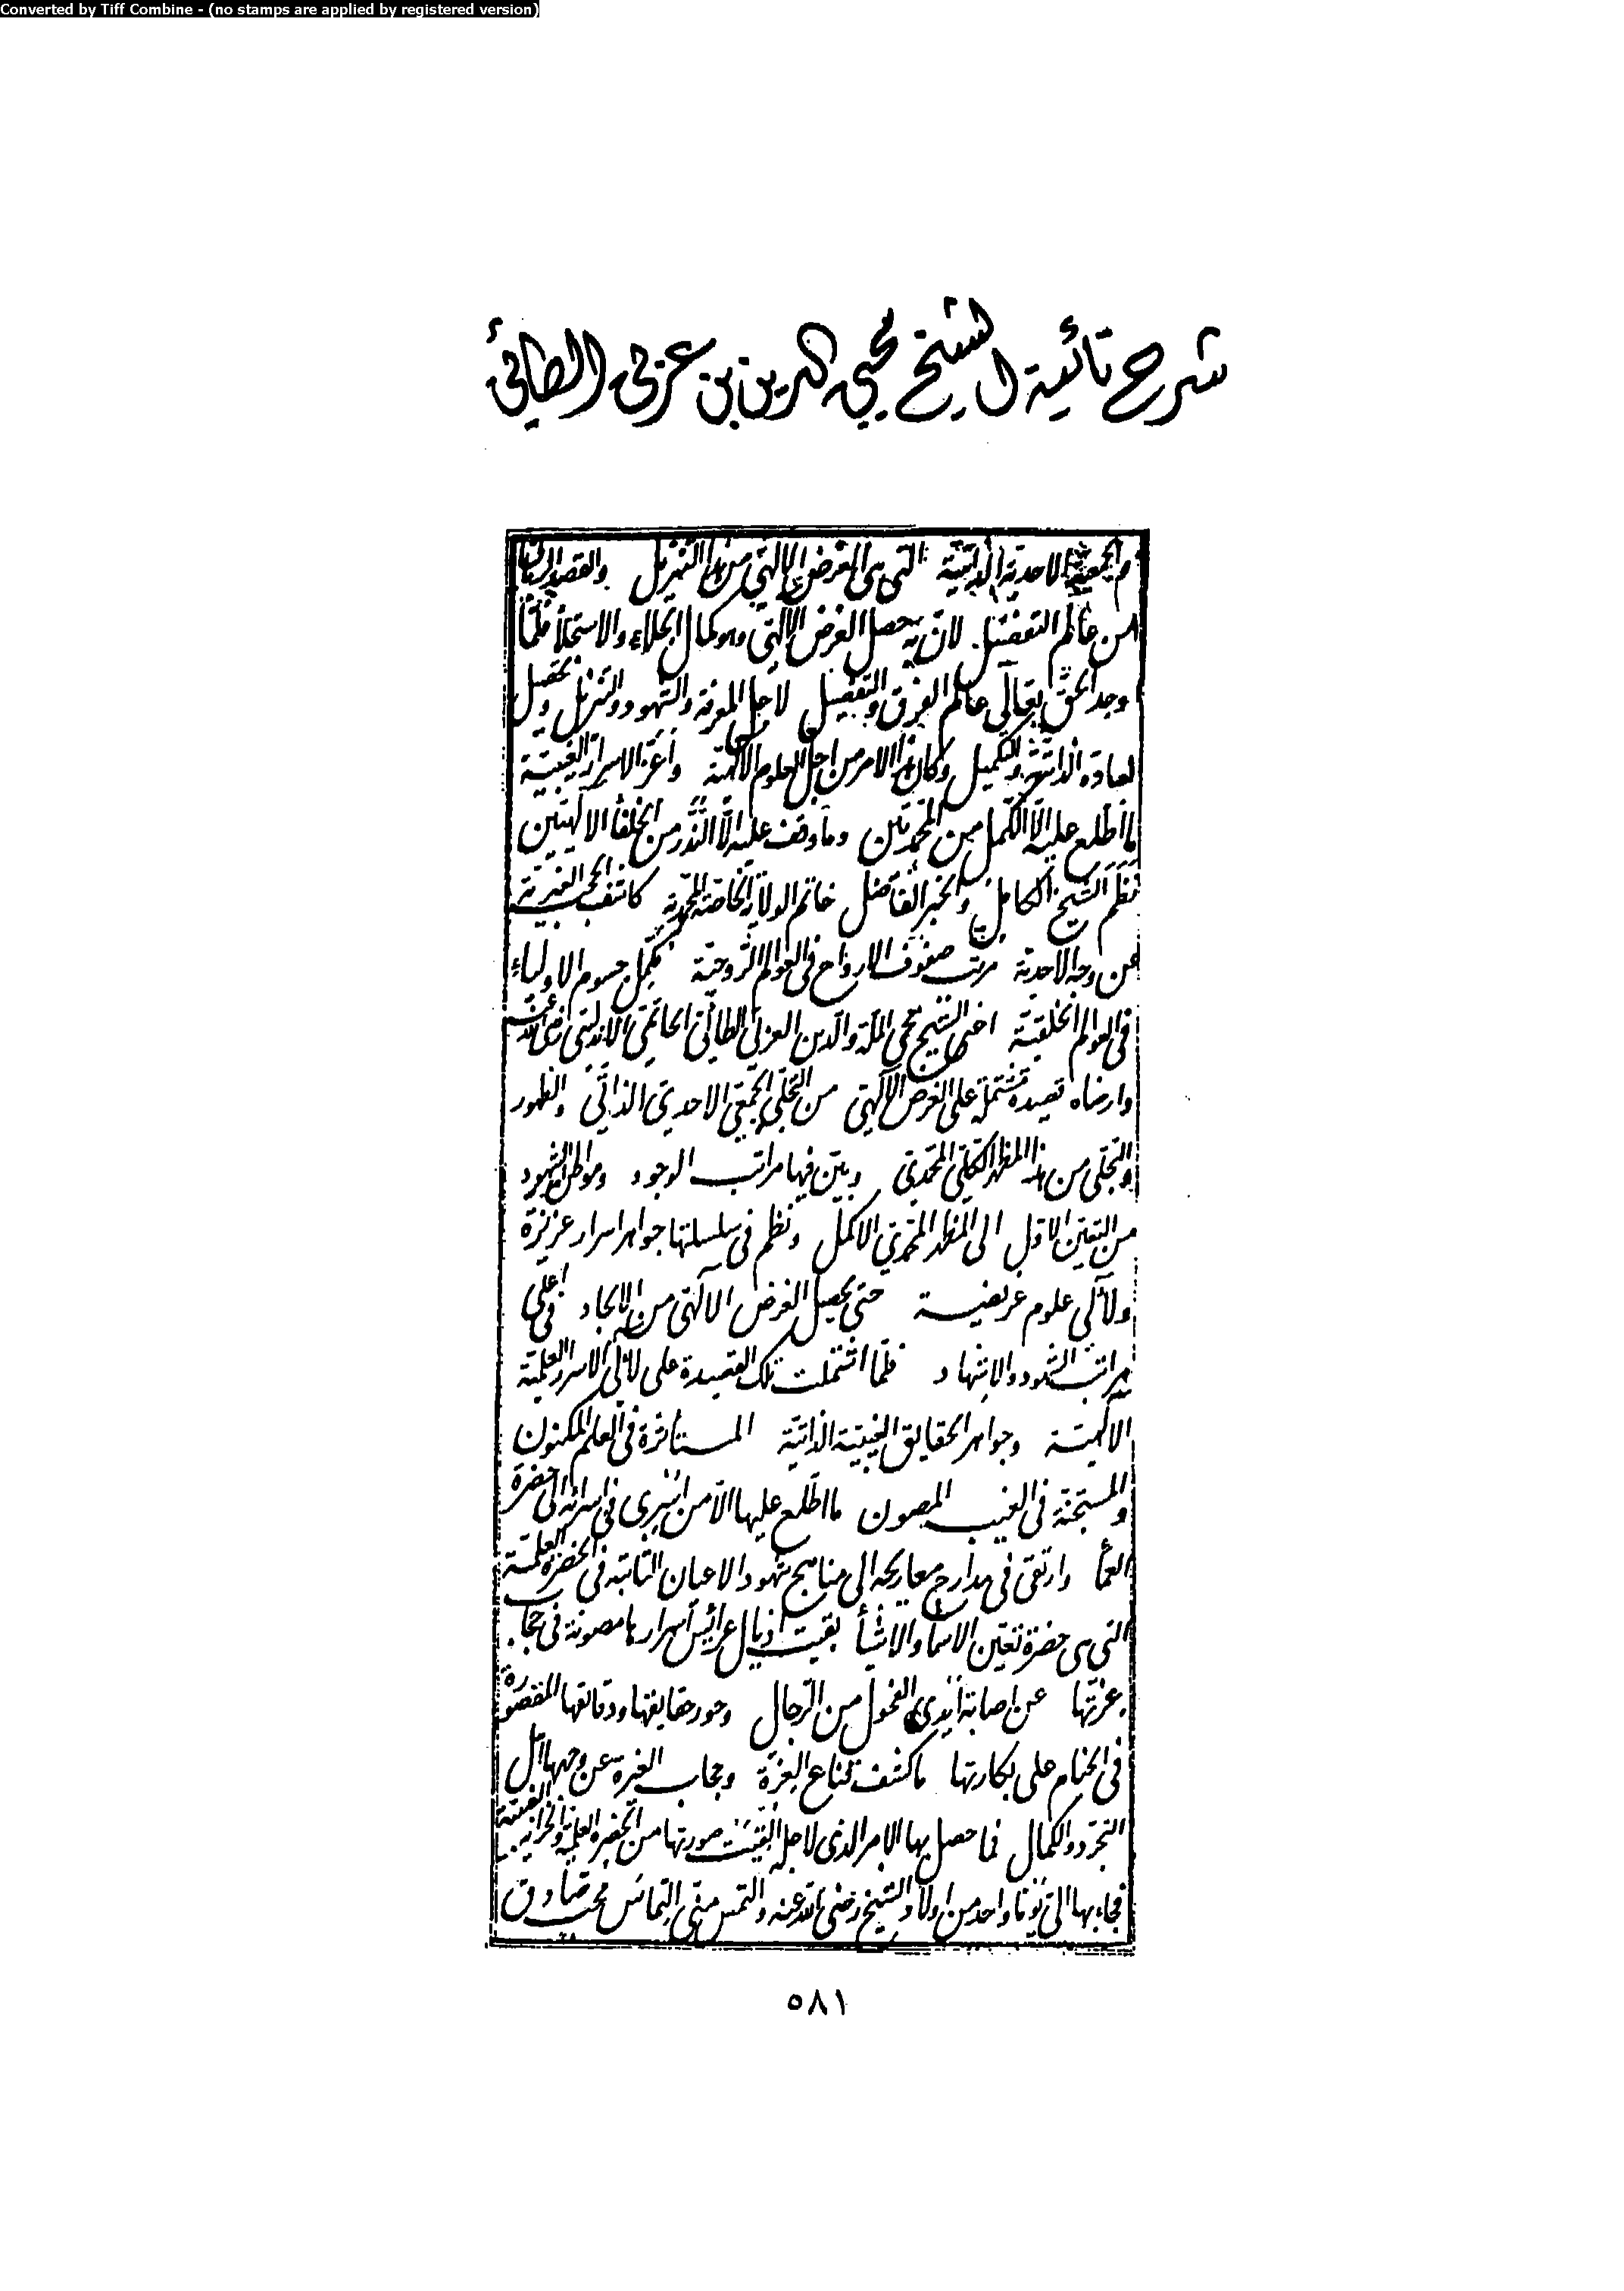 Converted by Tiff Combine - (no stamps are applied by registered version)
شرح تائية الشيخ محيي الدين بن عربي الطائي
الاحدية الذاتية التى هى الغرض الالهي من هذا التنزيل والقصد
من عالم التفصيل لان به يحصل الغرض الالهى وهو كمال الجلاء والاستجلاء فلما
وجد الحق تعالى عالم الفرق والتفصيل لاجل المعرفة والشهود والتنزيل
والتكميل وكان هذا الامر من اجل العلوم الالهية وأعز الاسرار الغيبية
ما اطلع عليه الا الكمل من المحمديين وما وقف عليه الا الندر من الخلفا الالهيين
نظم الشيخ الكامل والحبر الفاضل خاتم الولاية الخاصة المحمدية كاشف الحجب الغيرية
عن وجه الاحدية مرتب صفوف الارواح فى العوالم الروحية مكمل جسوم الاولياء
فى العوالم الخلقية اعنى الشيخ محى الملة والدين العربى الطائى الحاتمى الاندلسى رضى الله عنه
وارضاه قصيدة مشتملة على الغرض الالهى من التجلى الجمعى الاحدى الذاتى والظهور
والتجلى من هذا المظهر الكلى المحمدى وبين فيها مراتب الوجود ومواطن الشهود
من التعين الاول الى المظهر المحمدى الاكمل ونظم فى سلسلتها جواهر اسرار عزيزة
ولآلى علوم غريضية حتى يحصل الغرض الالهى من الايجاد فى اعلى
مراتب الشهود والاشهاد فلما اشتملت تلك القصيدة على لآلى الاسرار العلمية
الالهية وجواهر الحقايق الغيبية الذاتية المستأثرة فى العلم المكنون
والمستجنة فى الغيب المصون ما اطلع عليها الا من اسرى فى اسرائه الى حضرة
العما وارتقى فى مدارج معاريجه الى مناهج شهود الاعيان الثابتة فى الحضرة العلمية
التى هى حضرة تعين الاسما والاشيأ بقيت اذيال عرائس اسرارها مصونة فى حجاب
عزتها عن اصابة أيدى الفحول من الرجال وحور حقايقها ودقائقها المقصورة
فى الخيام على بكارتها ما كشف قناع العزة وحجاب الغيرة عن وجهها اهل
التجرد والكمال فما حصل بها الامر الذى لاجله صورتها من الحضرة العلمية والخزانة الغيبية
فجاء بها الى واحد من اولاد الشيخ رضى الله عنه والتمس منى التماس محب صادق
٥٨١